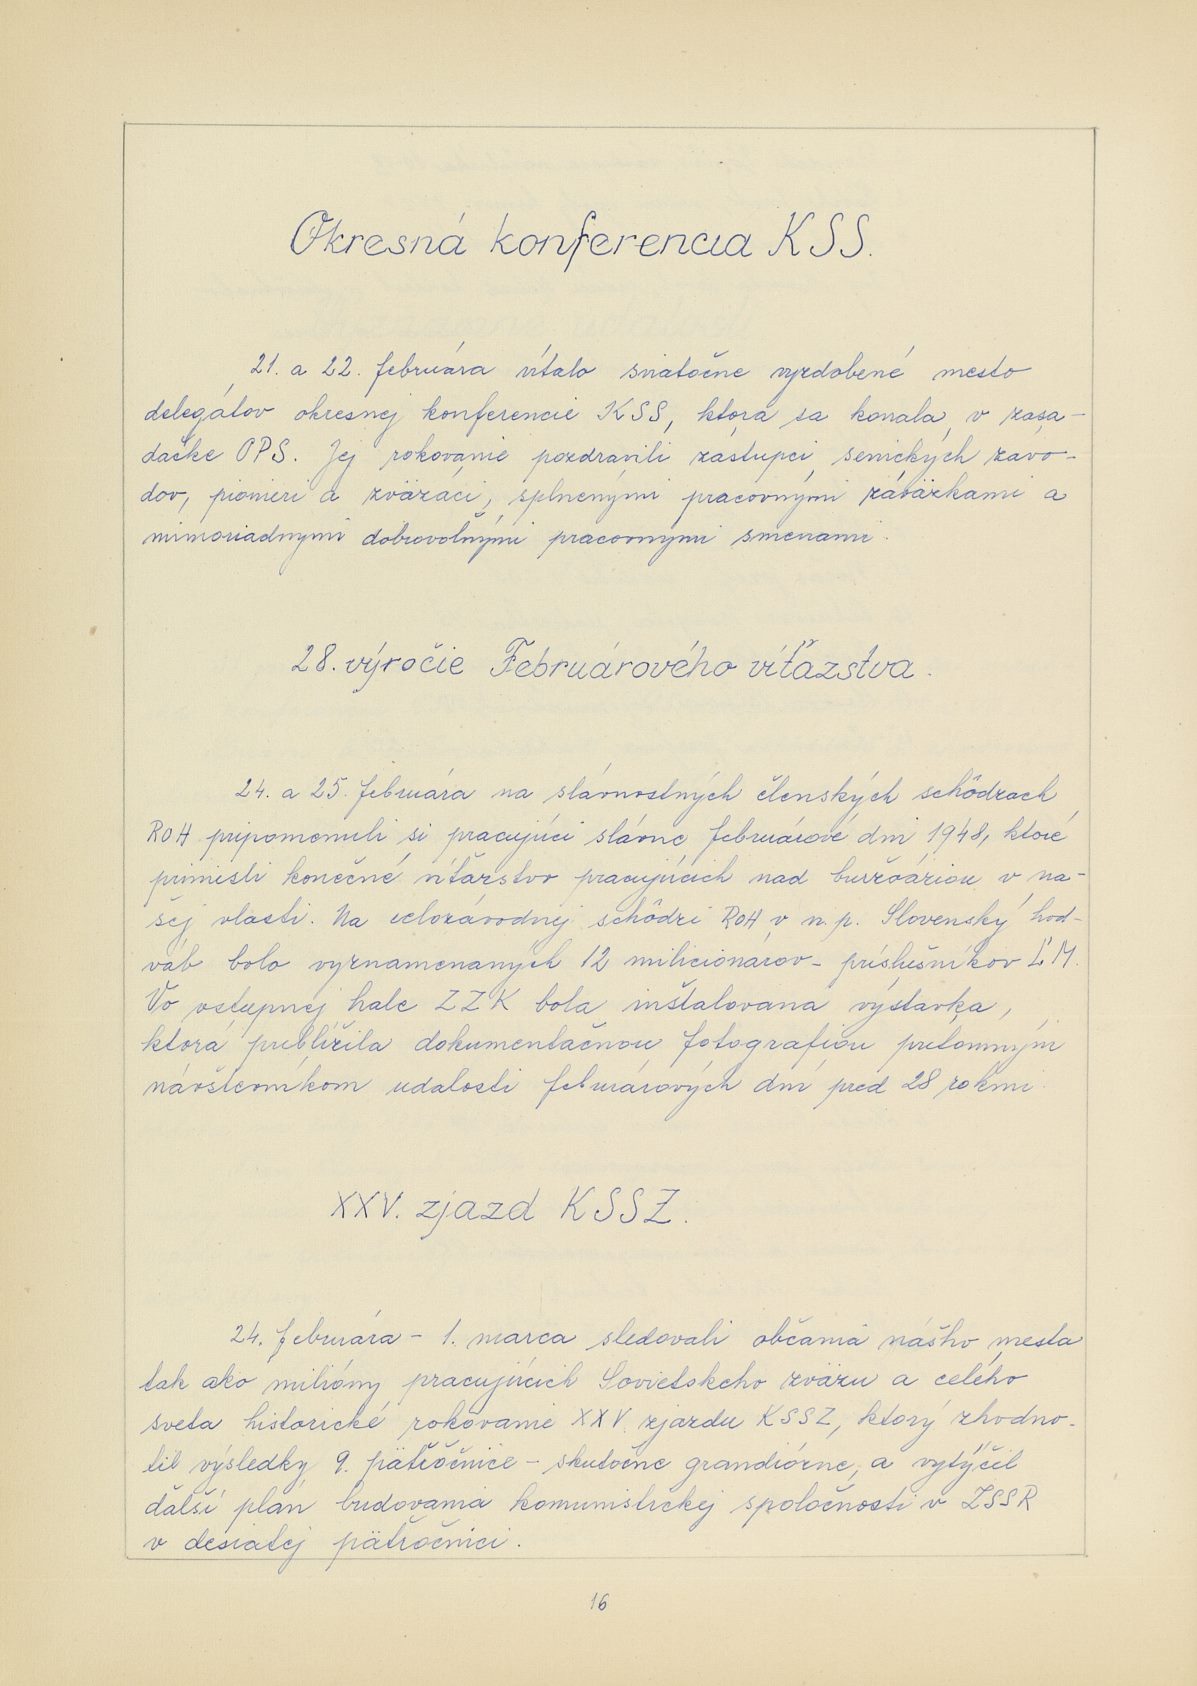 Okresná konferencia KSS.
21. a 22. februára vítalo sviatočne vyzdobené mesto
delegátov okresnej konferencie KSS, ktorá sa konala v zasa-
dačke OPS. Jej rokovanie pozdravili zástupci senických závo-
dov, pionieri a zväzáci, splnenými pracovnými záväzkami a
mimoriadnymi dobrovoľnými pracovnými smenami.
28. výročie Februárového víťazstva.
24. a 25. februára na slávnostných členských schôdzach
ROH pripomenuli si pracujúci slávne februárové dni 1948, ktoré
priniesli konečné víťazstvo pracujúcich nad buržoáziou v na-
šej vlasti. Na celozávodnej schôdzi ROH v n.p. Slovenský hod-
váb bolo vyznamenaných 12 milicionárov - príslušníkov ĽM.
Vo vstupnej hale ZZK bola inštalovaná výstavka,
ktorá priblížila dokumentačnou fotografiou prítomným
návštevníkom udalosti februárových dní pred 28 rokmi.
XXV. zjazd KSSZ.
24. februára - 1. marca sledovali občania nášho mesta
tak ako milióny pracujúcich Sovietskeho zväzu a celého
sveta historické rokovanie XXV. zjazdu KSSZ, ktorý zhodno-
til výsledky 9. päťročnice - skutočne grandiózne, a vytýčil
ďalší plán budovania komunistickej spoločnosti v ZSSR
v desiatej päťročnici.
16